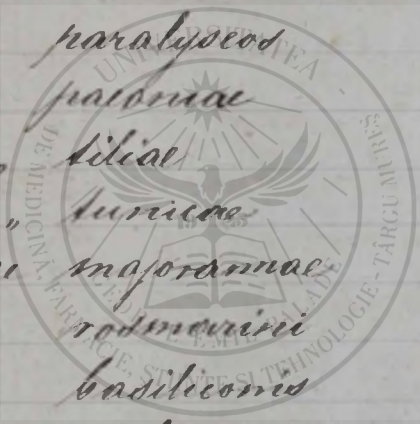 paralyseos
paeoniae
tiliae
" tunicae
majorannae
rosmarini
basiliconis
UNIVERSITATEA - DE MEDICINĂ, FARMACIE, ȘTIINȚE ȘI TEHNOLOGIE - TÂRGU MUREȘ
GEORGE EMIL PALADE